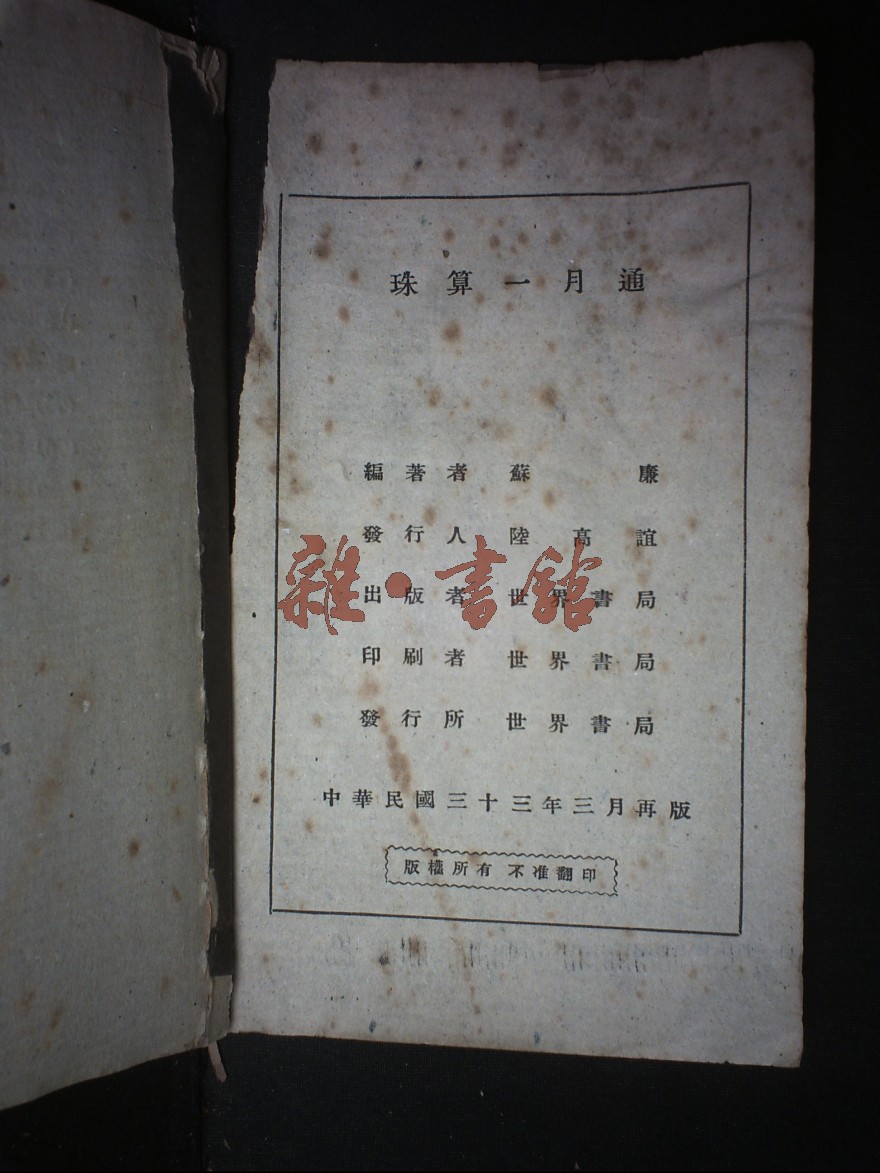 珠算一月通
編著者 蘇廉
發行人 陸高誼
出版者 世界書局
雜·書館
印刷者 世界書局
發行所 世界書局
中華民國三十三年三月再版
版權所有 不准翻印